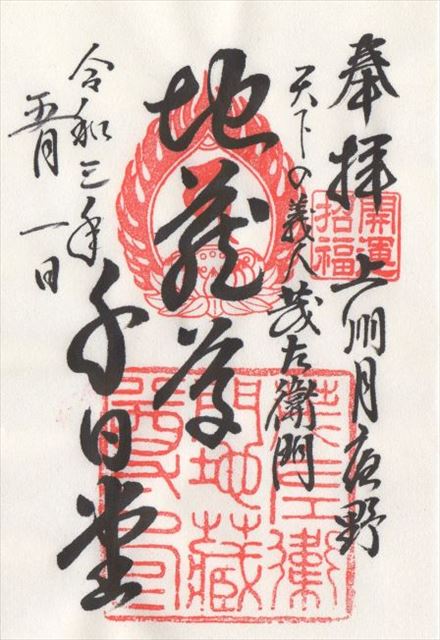 奉拝 上州月夜野
開運
招福
天下の義人 茂左衛門
地蔵尊
千日堂
令和三年
五月一日
茂左衛
門地蔵
尊印